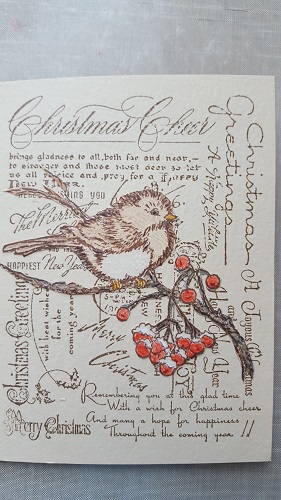 Christmas Cheer
brings gladness to all, both far and near,-
to stranger and those most dear so let
us all rejoice and pray, for a Happy
New Year.
WISHING YOU
The Merriest
HAPPIEST New Year
with best wishes
for the
coming year
Merry
Christmas
Christmas Greeting
Merry Christmas
Christmas
Greetings
A Happy
A Joyous
Christmas
Remembering you at this glad time
With a wish for Christmas cheer
And many a hope for happiness
Throughout the coming year